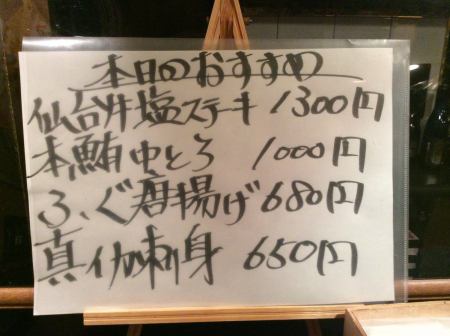 本日のおすすめ
仙台牛塩ステキ 1300円
本鮪中とろ 1000円
ふぐ唐揚げ 680円
真イカ刺身 650円